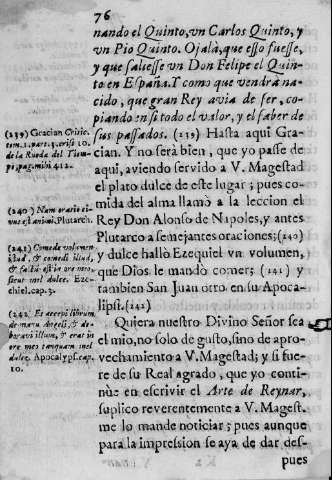 76
nando el Quinto, vn Carlos Quinto, y
vn Pio Quinto. Ojalà, que esso fuesse,
y que saliesse vn Don Felipe el Quin-
to en España. Y como que vendrà na-
cido, que gran Rey avia de ser, co-
piando en si todo el valor, y el saber de
sus passados. (239) Hasta aqui Gra-
cian. Y no serà bien, que yo passe de
aqui, aviendo servido a V. Magestad
el plato dulce de este lugar; pues co-
mida del alma llamò a la leccion el
Rey Don Alonso de Napoles, y antes
Plutarco a semejantes oraciones; (240)
y dulce hallò Ezequiel vn volumen,
que Dios le mandò comer; (241) y
tambien San Juan otro en su Apoca-
lipsi. (242)
Quiera nuestro Divino Señor sea
el mio, no solo de gusto, sino de apro-
vechamiento a V. Magestad; y si fue-
re de su Real agrado, que yo conti-
nùe en escrivir el Arte de Reynar,
suplico reverentemente a V. Magest.
me lo mande noticiar; pues aunque
para la impression se aya de dar des-
pues
(239) Gracian Critic.
tom. 1. part. 3. crisi 10.
de la Rueda del Tiem-
po, pag. mihi 412.
(240) Nam oratio ci-
bus est animi. Plutarch.
(241) Comede volumen
istud, & comedi illud,
& factū est in ore meo,
sicut mel dulce. Eze-
chiel. cap. 3.
(242) Et accepi librum
de manu Angeli, & de-
voravi illum, & erat in
ore meo tanquam mel
dulce. Apocalyps. cap.
10.